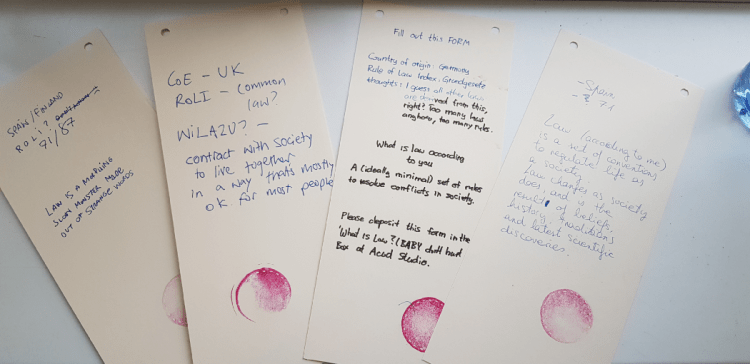 SPAIN/FINLAND
R.O.L.I?
71/87
LAW IS A MORPHING
SLOW MONSTER MADE
OUT OF STRANGE WORDS
CoE – UK
ROLI – common
law?
WILA2U? –
contract with society
to live together
in a way that's mostly
OK for most people
Fill out this FORM
Country of origin: Germany
Rule of Law Index: Grundgesetz
thoughts: I guess all other laws
are derived from this,
right? Too many laws
anyhow, too many rules.
What is law according
to you
A (ideally minimal) set of rules
to resolve conflicts in society.
Please deposit this form in the
'What is Law?' (BABY
Box at Acud Studio.
- Spain
- 71
Law (according to me)
is a set of conventions
to regulate life as
a society.
Law changes as society
does and is the
result of beliefs,
history, traditions
and latest scientific
discoveries.